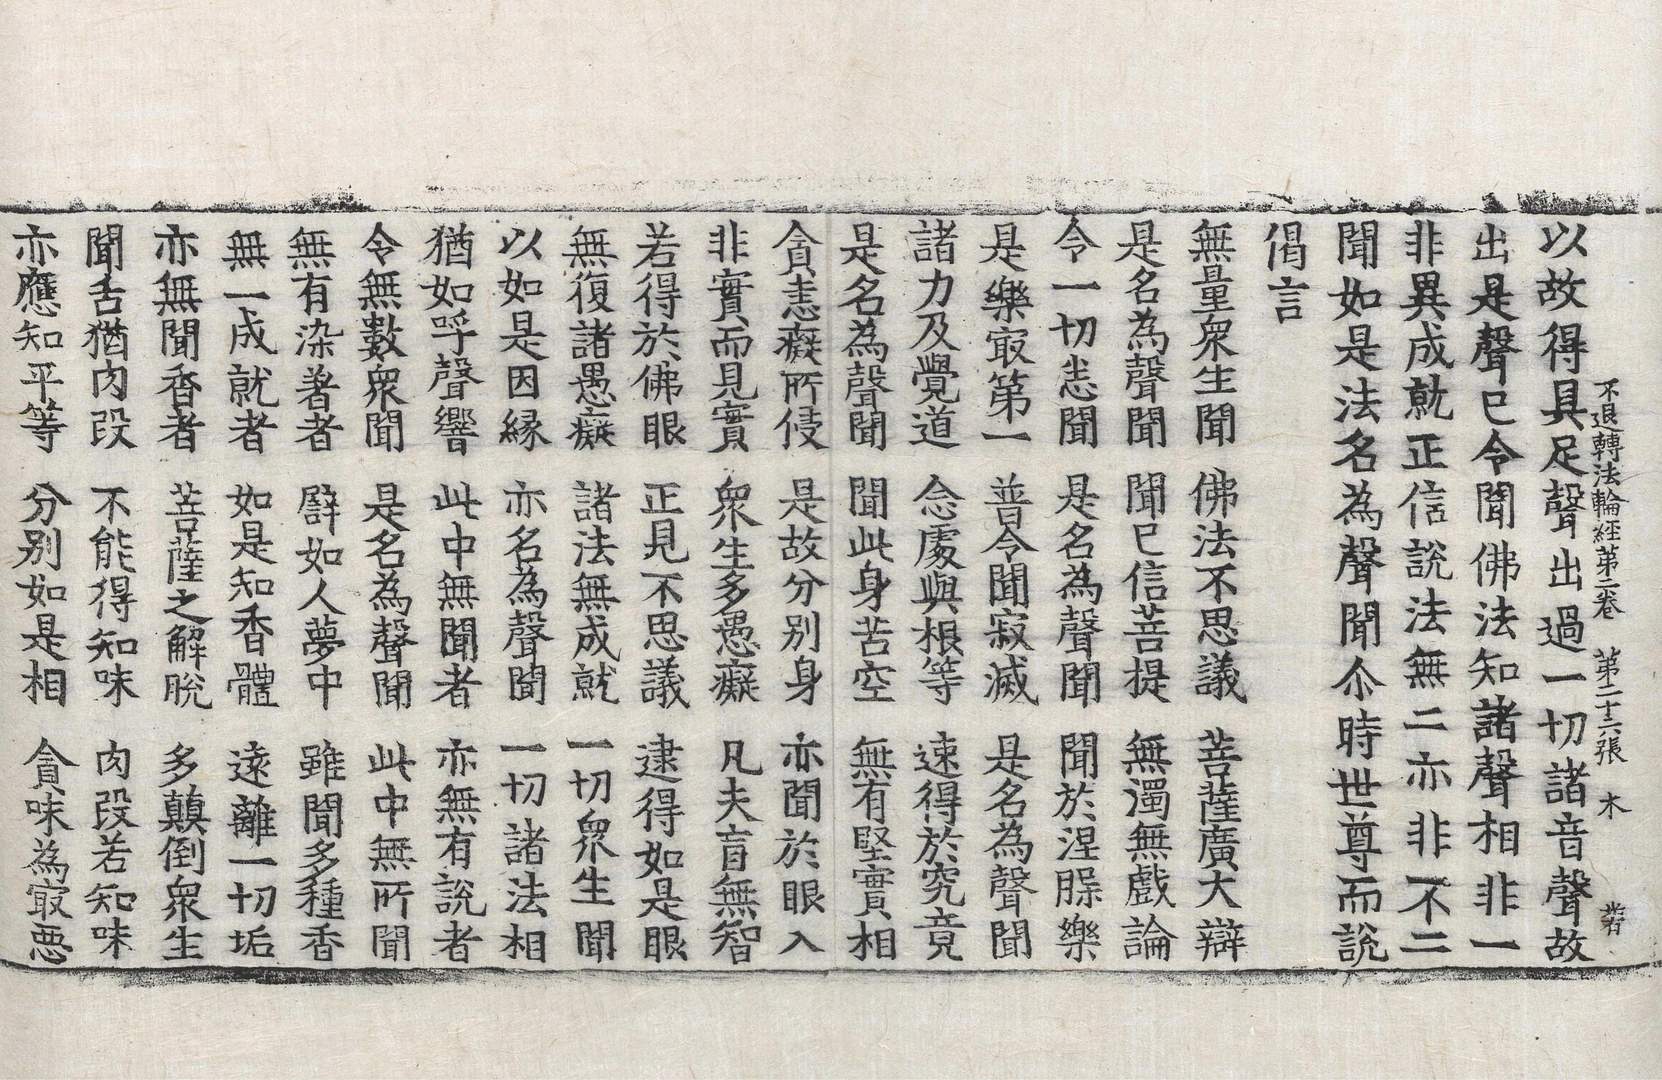 不退轉法輪經第二卷 第二十六張 木
以故得具足聲出過一切諸音聲故
出是聲已令聞佛法知諸聲相非一
非異成就正信說法無二亦非不二
聞如是法名為聲聞尒時世尊而說
偈言
無量衆生聞 佛法不思議 菩薩廣大辯
是名為聲聞 聞已信菩提 無濁無戲論
令一切恚聞 是名為聲聞 聞於涅槃樂
是樂㝡第一 普令聞寂滅 是名為聲聞
諸力及覺道 念處與根等 速得於究竟
是名為聲聞 聞此身苦空 無有堅實相
貪恚癡所侵 是故分別身 亦聞於眼入
非實而見實 衆生多愚癡 凡夫盲無智
若得於佛眼 正見不思議 逮得如是眼
無復諸愚癡 諸法無成就 一切衆生聞
以如是因緣 亦名為聲聞 一切諸法相
猶如呼聲響 此中無聞者 亦無有說者
令無數衆聞 是名為聲聞 此中無所聞
無有染著者 譬如人夢中 雖聞多種香
無一成就者 如是知香體 遠離一切垢
亦無聞香者 菩薩之解脫 多顛倒衆生
聞舌猶肉段 不能得知味 肉段若知味
亦應知平等 分別如是相 貪味為㝡惡